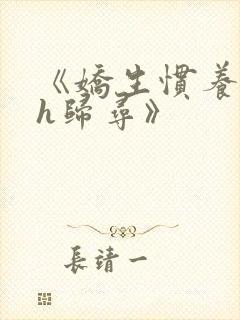 《嬌生慣養
h歸尋》
長靖一